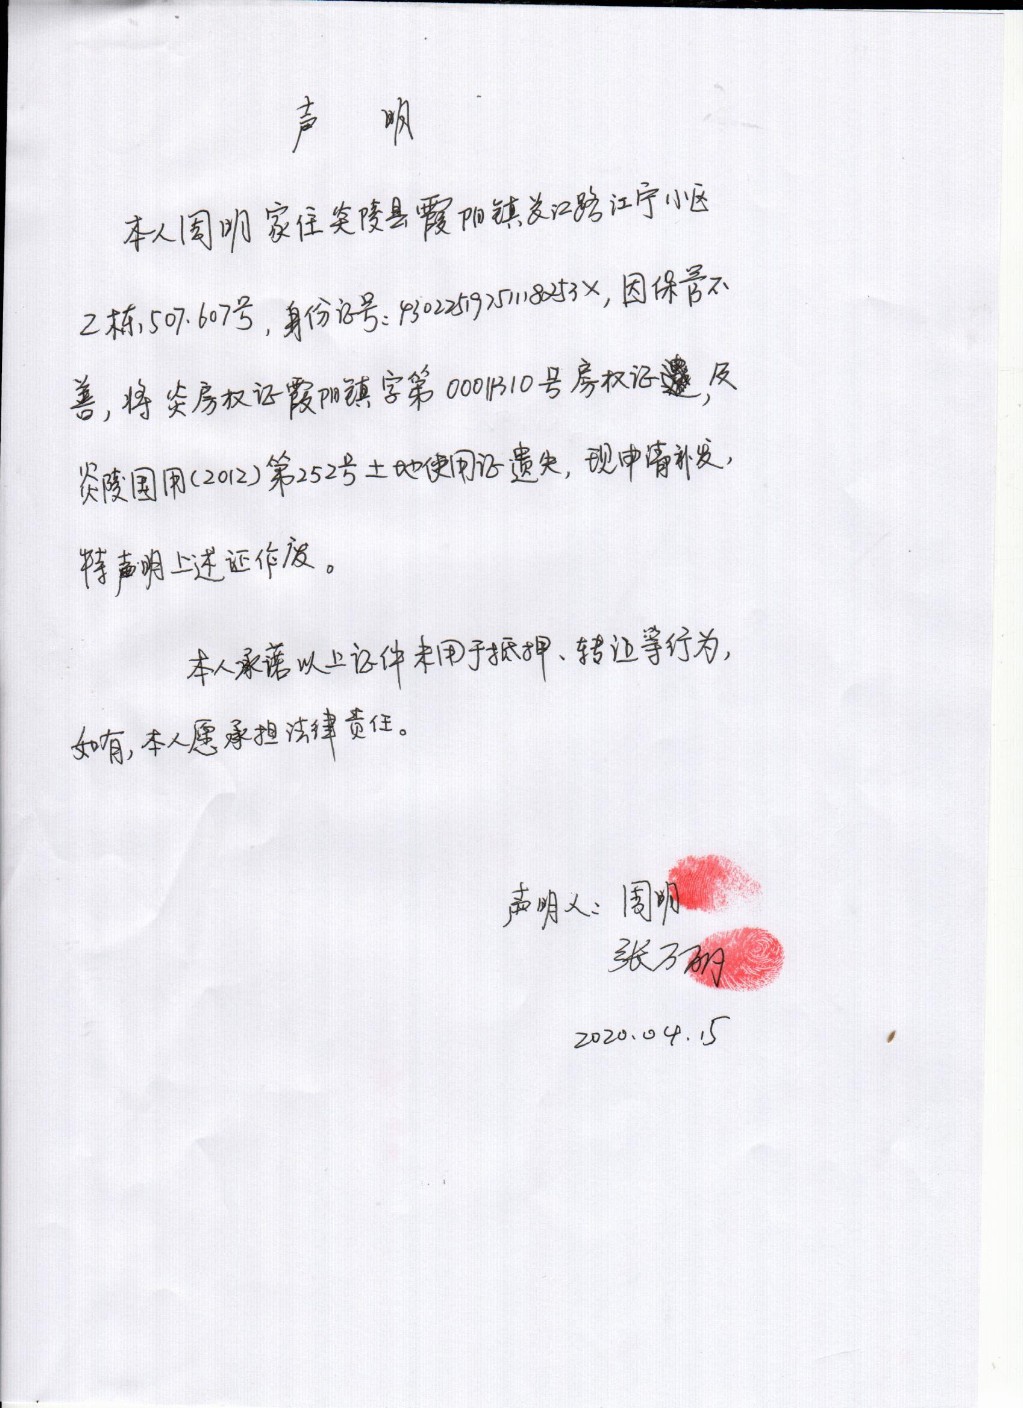 声 明
本人周明家住炎陵县霞阳镇 江路江宁小区
乙栋,507.607号,身份证号:43022519751118253X,因保管不
善,将炎房权证霞阳镇字第00011310号房权证 ,及
炎陵国用(2012)第252号土地使用证遗失,现申请补发,
特声明上述证作废。
本人承诺以上证件未用于抵押、转让等行为,
如有,本人愿承担法律责任。
声明人:周明
张万丽
2020.04.15